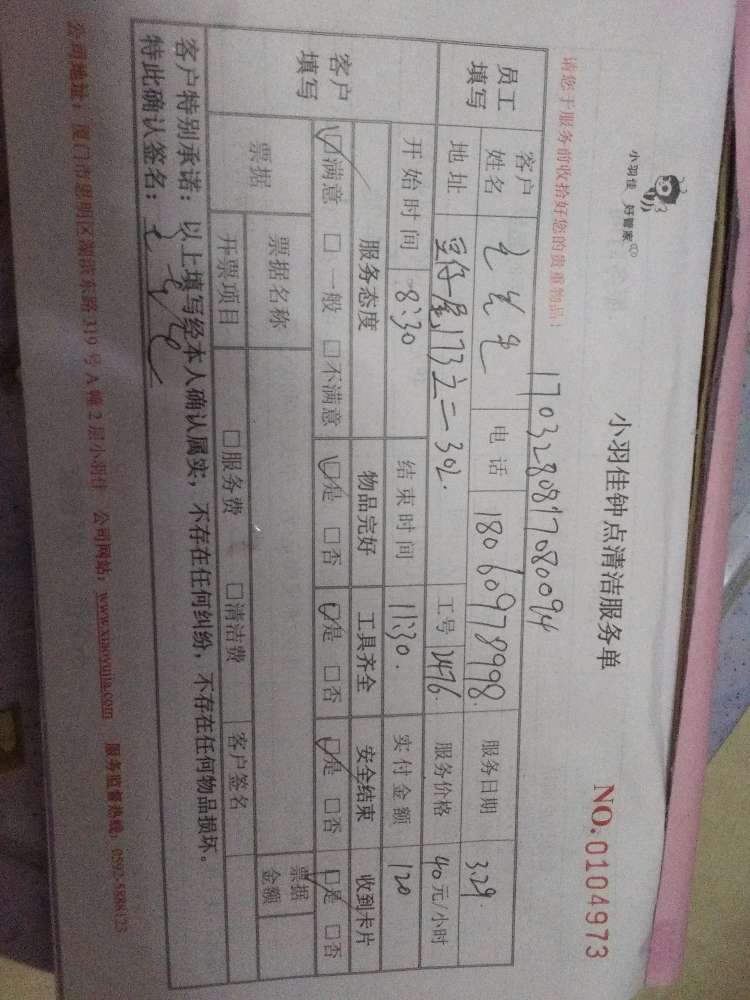 小羽佳 好管家
小羽佳钟点清洁服务单
NO.0104973
请您于服务前收拾好您的贵重物品!
1703280817080094
员工填写 客户姓名 电话 18060978998 服务日期 3.29
地址 豆仔尾173之二302. 工号 2476. 服务价格 40元/小时
客户填写 开始时间 8:30 结束时间 11:30. 实付金额 120
服务态度 物品完好 工具齐全 安全结束 收到卡片
☑满意 □一般 □不满意 ☑是 □否 ☑是 □否 ☑是 □否 ☑是 □否
票据 票据名称 票据金额
开票项目 □服务费 □清洁费 客户签名
客户特别承诺:以上填写经本人确认属实,不存在任何纠纷,不存在任何物品损坏。
特此确认签名:
公司地址:厦门市思明区湖滨东路319号A幢2层小羽佳 公司网站:www.xiaoyujia.com 服务监督热线:0592-5888123